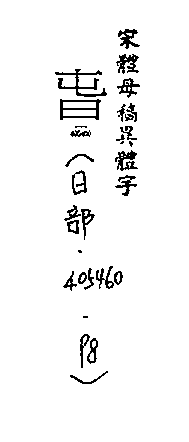 宋體母稿異體字
旾
（日部．405460－P8）